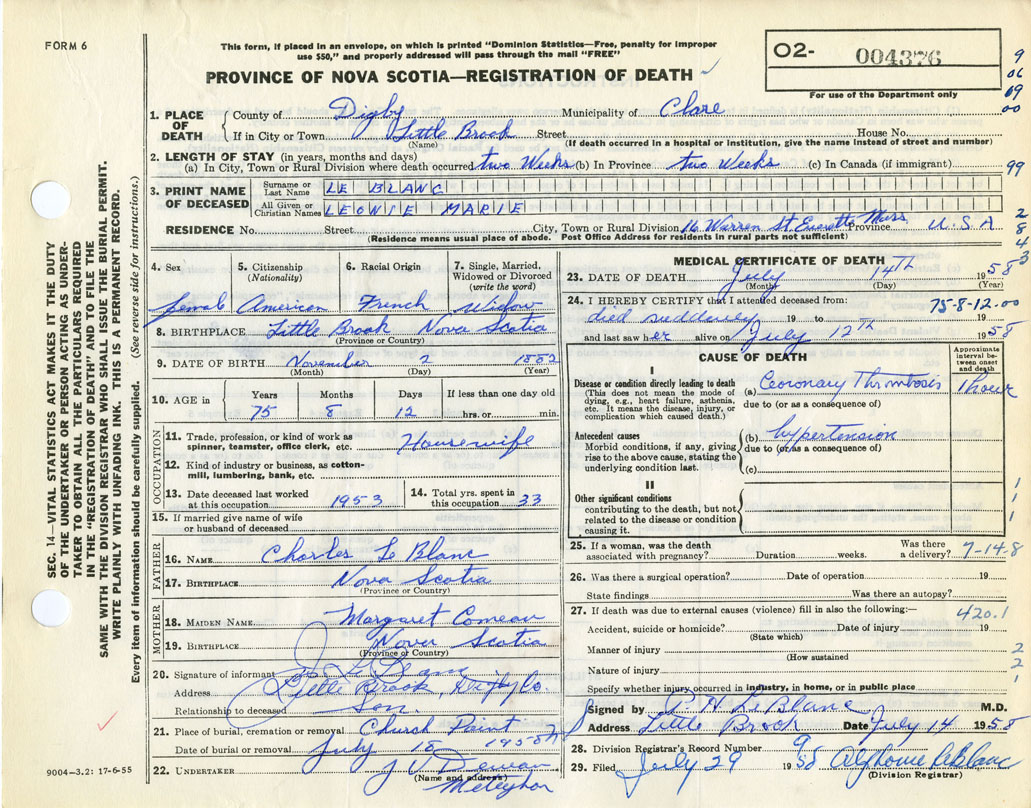 FORM 6
This form, if placed in an envelope, on which is printed "Dominion Statistics—Free, penalty for improper
use $50," and properly addressed will pass through the mail "FREE"
02- 004376
PROVINCE OF NOVA SCOTIA—REGISTRATION OF DEATH
For use of the Department only
9
06
09
00
1. PLACE OF DEATH
County of Digby Municipality of Clare
If in City or Town Little Brook Street House No.
(Name) (If death occurred in a hospital or institution, give the name instead of street and number)
2. LENGTH OF STAY (in years, months and days)
(a) In City, Town or Rural Division where death occurred two Weeks (b) In Province two Weeks (c) In Canada (if immigrant)
99
3. PRINT NAME OF DECEASED
Surname or Last Name LE BLANC
All Given or Christian Names LEONIE MARIE
RESIDENCE No. Street City, Town or Rural Division 16 Warren St Everette Mass Province U.S.A
(Residence means usual place of abode. Post Office Address for residents in rural parts not sufficient)
2
8
4
3
4. Sex 5. Citizenship (Nationality) 6. Racial Origin 7. Single, Married, Widowed or Divorced (write the word)
Femal American French Widow
8. BIRTHPLACE Little Brook Nova Scotia
(Province or Country)
9. DATE OF BIRTH November 2 1882
(Month) (Day) (Year)
10. AGE in Years Months Days If less than one day old
75 8 12 hrs. or min.
OCCUPATION
11. Trade, profession, or kind of work as spinner, teamster, office clerk, etc. Housewife
12. Kind of industry or business, as cotton-mill, lumbering, bank, etc.
13. Date deceased last worked at this occupation 1953
14. Total yrs. spent in this occupation 33
15. If married give name of wife or husband of deceased
FATHER
16. NAME Charles Le Blanc
17. BIRTHPLACE Nova Scotia
(Province or Country)
MOTHER
18. MAIDEN NAME Margaret Comeau
19. BIRTHPLACE Nova Scotia
(Province or Country)
20. Signature of informant
Address Little Brook, Digby Co.
Relationship to deceased Son
21. Place of burial, cremation or removal Church Point
Date of burial or removal July 18 1958
22. UNDERTAKER
(Name and address)
Meteghan
MEDICAL CERTIFICATE OF DEATH
23. DATE OF DEATH July 14TH 1958
(Month) (Day) (Year)
24. I HEREBY CERTIFY that I attended deceased from: 75-8-12.00
died suddenly 19 to 19
and last saw her alive on July 12TH 1958
CAUSE OF DEATH
Approximate interval between onset and death
I
Disease or condition directly leading to death
(This does not mean the mode of dying, e.g., heart failure, asthenia, etc. It means the disease, injury, or complication which caused death.)
(a) Coronary Thrombosis 1 hour
due to (or as a consequence of)
Antecedent causes
Morbid conditions, if any, giving rise to the above cause, stating the underlying condition last.
(b) hypertension
due to (or as a consequence of)
(c)
II
Other significant conditions
contributing to the death, but not related to the disease or condition causing it.
1
1
1
25. If a woman, was the death associated with pregnancy? Duration weeks. Was there a delivery? 7-14.8
26. Was there a surgical operation? Date of operation 19
State findings Was there an autopsy?
27. If death was due to external causes (violence) fill in also the following:—
420.1
Accident, suicide or homicide? Date of injury 19
(State which)
Manner of injury 2
(How sustained)
2
Nature of injury 1
Specify whether injury occurred in industry, in home, or in public place
Signed by P. H. LeBlanc M.D.
Address Little Brook Date July 14 1958
28. Division Registrar's Record Number 9
29. Filed July 29 1958 Alphonse LeBlanc
(Division Registrar)
SEC. 14—VITAL STATISTICS ACT MAKES IT THE DUTY
OF THE UNDERTAKER OR PERSON ACTING AS UNDER-
TAKER TO OBTAIN ALL THE PARTICULARS REQUIRED
IN THE "REGISTRATION OF DEATH" AND TO FILE THE
SAME WITH THE DIVISION REGISTRAR WHO SHALL ISSUE THE BURIAL PERMIT.
WRITE PLAINLY WITH UNFADING INK. THIS IS A PERMANENT RECORD.
Every item of information should be carefully supplied. (See reverse side for instructions.)
9004—3.2: 17-6-55